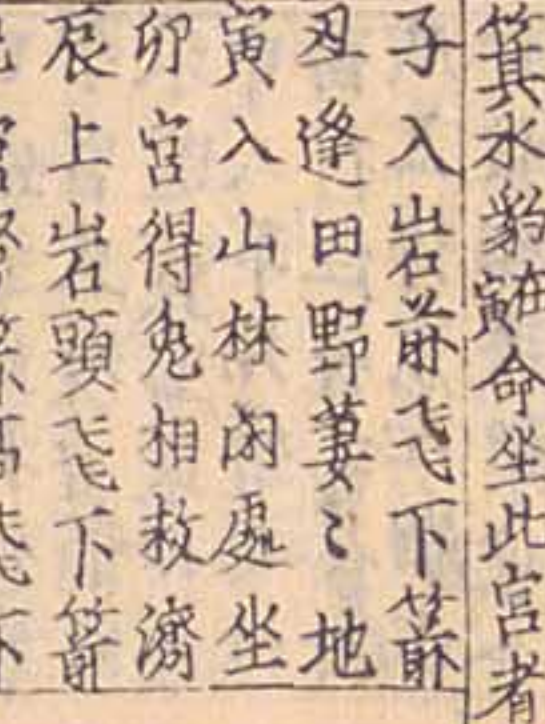 箕水豹在寅命坐此宫者
子入岩前飛下箭
丑逢田野萋〻地
寅入山林闲處坐
卯宫得兔相救濟
辰上岩頭飛下箭